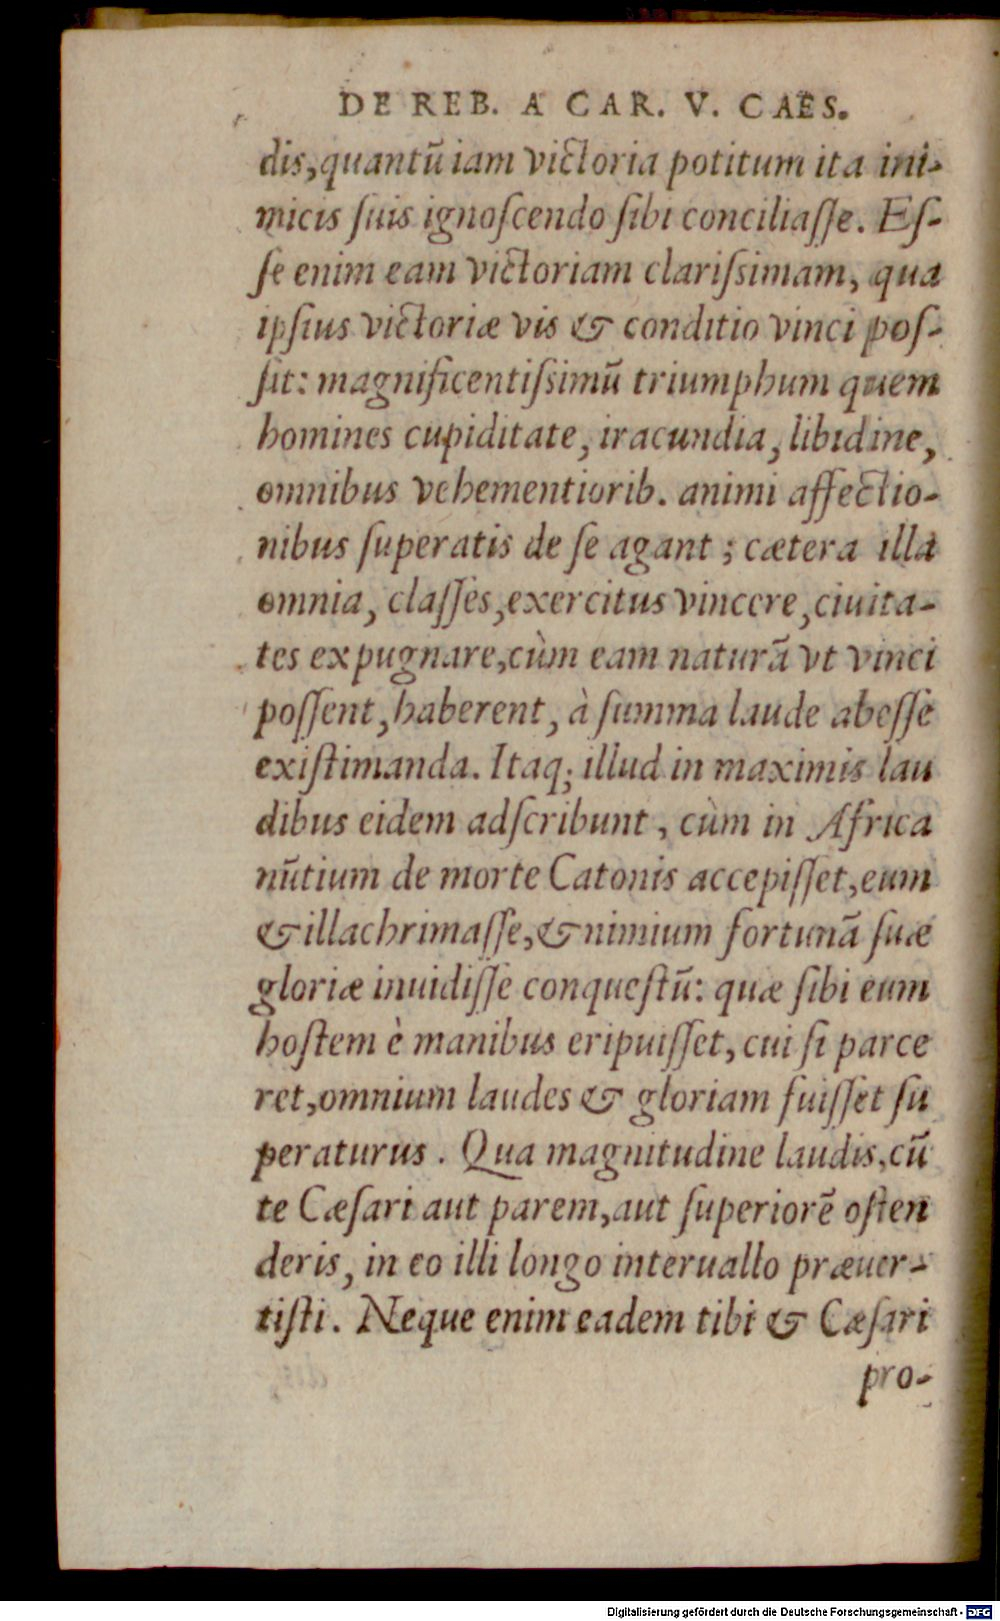 DE REB. A CAR. V. CAES.
dis, quantũ iam victoria potitum ita ini-
micis ſuis ignoſcendo ſibi conciliaſſe. Eſ-
ſe enim eam victoriam clariſsimam, qua
ipſius victoriæ vis & conditio vinci poſ-
ſit: magnificentiſsimũ triumphum quem
homines cupiditate, iracundia, libidine,
omnibus vehementiorib. animi affectio-
nibus ſuperatis de ſe agant; cætera illa
omnia, claſſes, exercitus vincere, ciuita-
tes expugnare, cùm eam naturã vt vinci
poſſent, haberent, à ſumma laude abeſſe
exiſtimanda. Itaq; illud in maximis lau
dibus eidem adſcribunt, cùm in Africa
nũtium de morte Catonis accepiſſet, eum
& illachrimaſſe, & nimium fortunã ſuæ
gloriæ inuidiſſe conqueſtũ: quæ ſibi eum
hoſtem è manibus eripuiſſet, cui ſi parce
ret, omnium laudes & gloriam fuiſſet ſu
peraturus. Qua magnitudine laudis, cũ
te Cæſari aut parem, aut ſuperiorẽ oſten
deris, in eo illi longo interuallo præuer-
tiſti. Neque enim eadem tibi & Cæſari
pro-
Digitalisierung gefördert durch die Deutsche Forschungsgemeinschaft - DFG